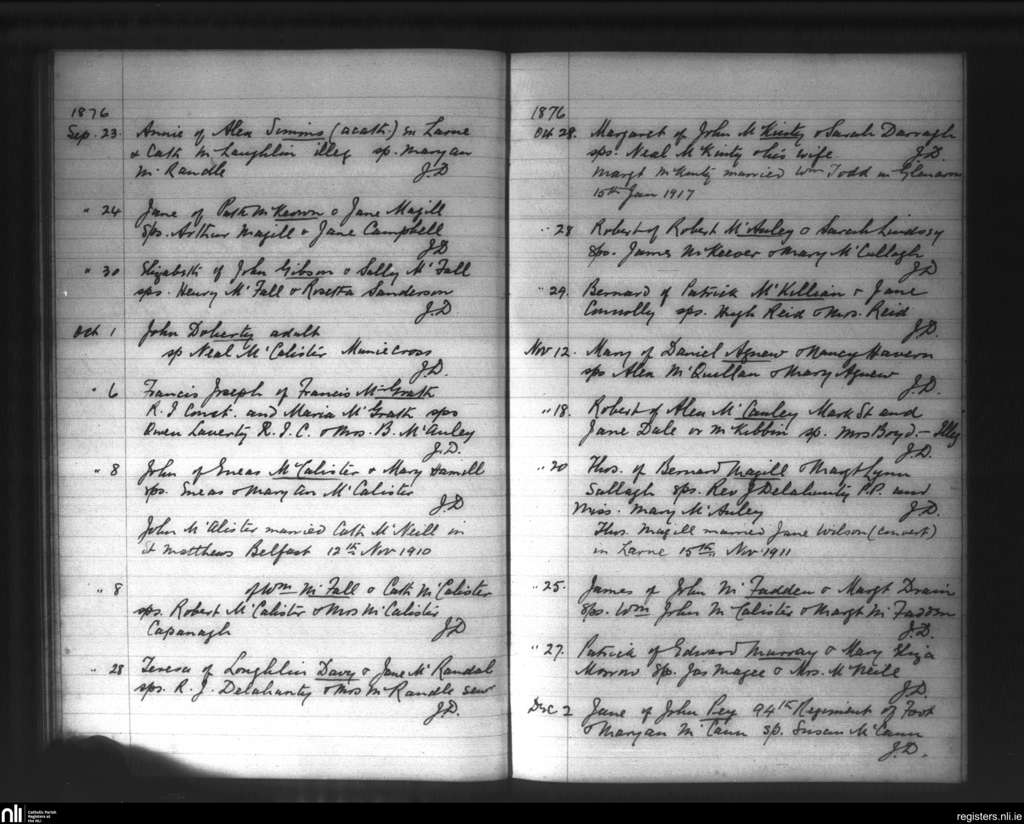 1876
Sep. 23. Annie of Alex Simms (acath.) in Larne
& Cath McLaughlin illeg sp. Maryan
McRandle J.D
" 24 Jane of Patk McKeown & Jane Magill
Sps. Arthur Magill & Jane Campbell
J.D
" 30 Elizabeth of John Gibson & Sally McFall
sps. Henry McFall & Rosetta Sanderson
J.D
Oct 1 John Doherty adult
sp Neal McCalister Muniecross
J.D.
" 6 Francis Joseph of Francis McGrath
R. I Const. and Maria McGrath sps
Owen Laverty R.I.C. & Mrs. B. McAuley
J.D.
" 8 John of Eneas McCalister & Mary Hamill
sps. Eneas & Mary An McCalister
J.D
John McAlister married Cath McNeill in
St Matthews Belfast 12th Nov 1910
" 8 of Wm McFall & Cath McCalister
sps. Robert McCalister & Mrs McCalister
Capanagh J.D
" 28 Teresa of Loughlin Davy & Jane McRandal
sps. R. J. Delahunty & Mrs McRandle senr
J.D.
1876
Oct 28. Margaret of John McKinty & Sarah Darragh
sps. Neal McKinty & his wife J.D.
Margt McKinty married Wm Todd in Glenarm
15th Jan 1917
" 28 Robert of Robert McAuley & Sarah Lindsay
Sps. James McKeever & Mary McCullagh
J.D
" 29. Bernard of Patrick McKillian & Jane
Connolly sps. Hugh Reid & Mrs. Reid
J.D.
Nov 12. Mary of Daniel Agnew & Nancy Havern
sps Alex McQuillan & Mary Agnew
J.D.
" 18. Robert of Alex McCauley Mark St and
Jane Dale or McKibbin sp. Mrs Boyd. - Illeg
J.D.
" 20 Thos. of Bernard Magill & Margt Lynn
Sallagh sps. Rev J Delahunty P.P. and
Miss. Mary McAuley J.D.
Thos. Magill married Jane Wilson (convert)
in Larne 15th Nov 1911
" 25. James of John McFadden & Margt Drain
Sps. Wm John McCalister & Margt McFadden
J.D.
" 27. Patrick of Edward Murray & Mary Eliza
Morrow Sps. Jas Magee & Mrs. McNeile
J.D.
Dec 2 Jane of John Pey 94th Regiment of Foot
& Maryan McCann sp. Susan McCann
J.D.
nli
Catholic Parish
Registers at
the NLI
registers.nli.ie